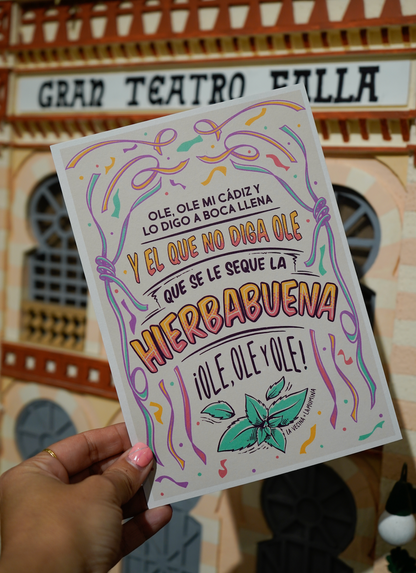 GRAN TEATRO FALLA
OLE, OLE MI CÁDIZ Y
LO DIGO A BOCA LLENA
Y EL QUE NO DIGA OLE
QUE SE LE SEQUE LA
HIERBABUENA
¡OLE, OLE Y OLE!